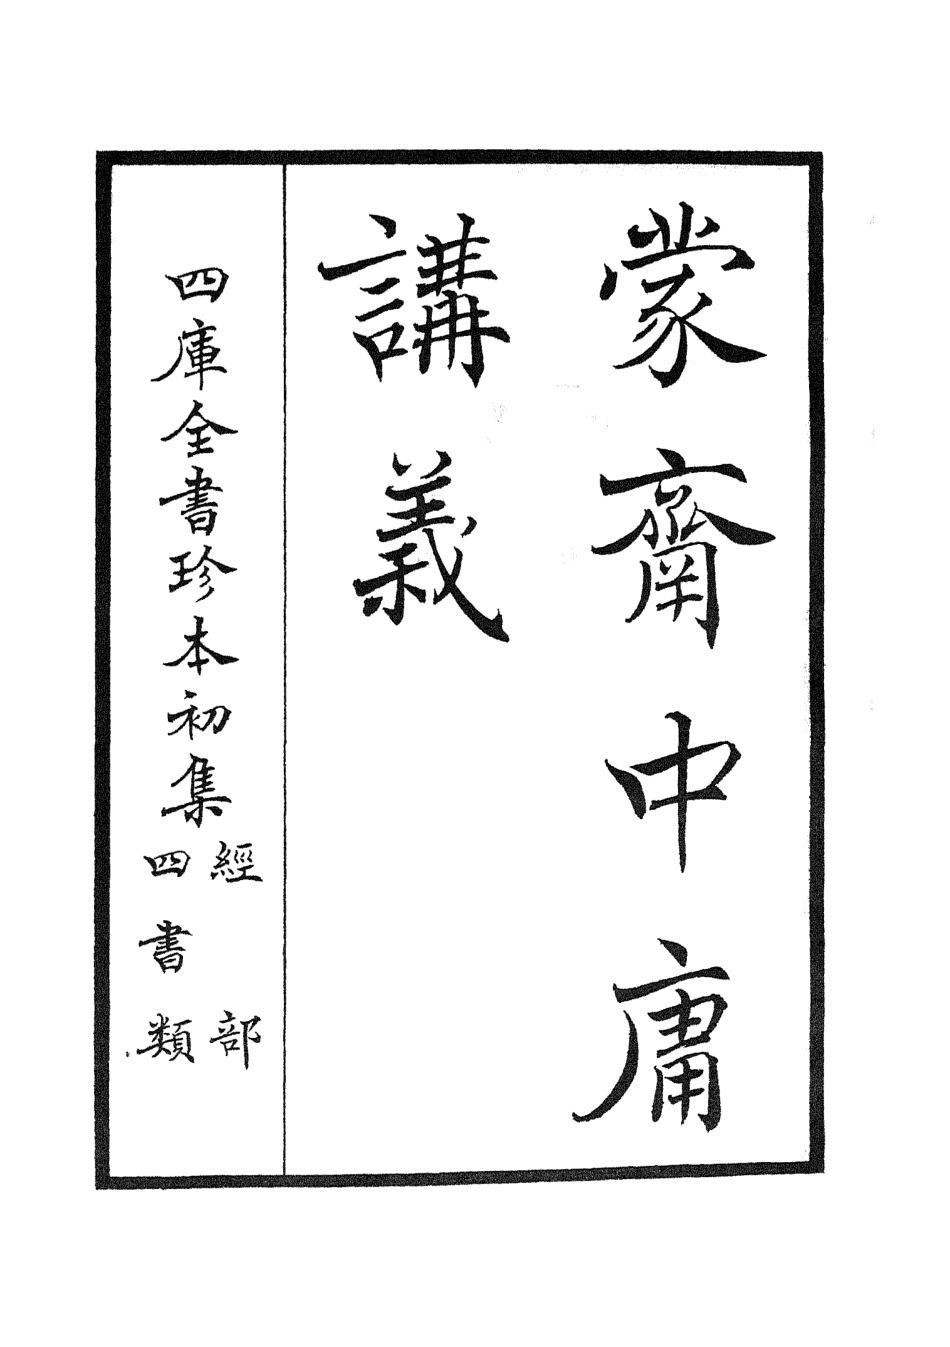 蒙齋中庸
講義
四庫全書珍本初集
經部
四書類